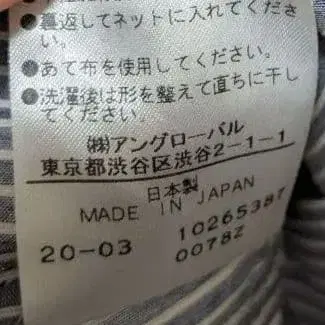 ●裏返してネットに入れてくださ
い。
●あて布を使用してください。
●洗濯後は形を整えて直ちに干し
てください。
㈱アングローバル
東京都渋谷区渋谷2-1-1
日本製
MADE IN JAPAN
20-03 10265387
0078Z